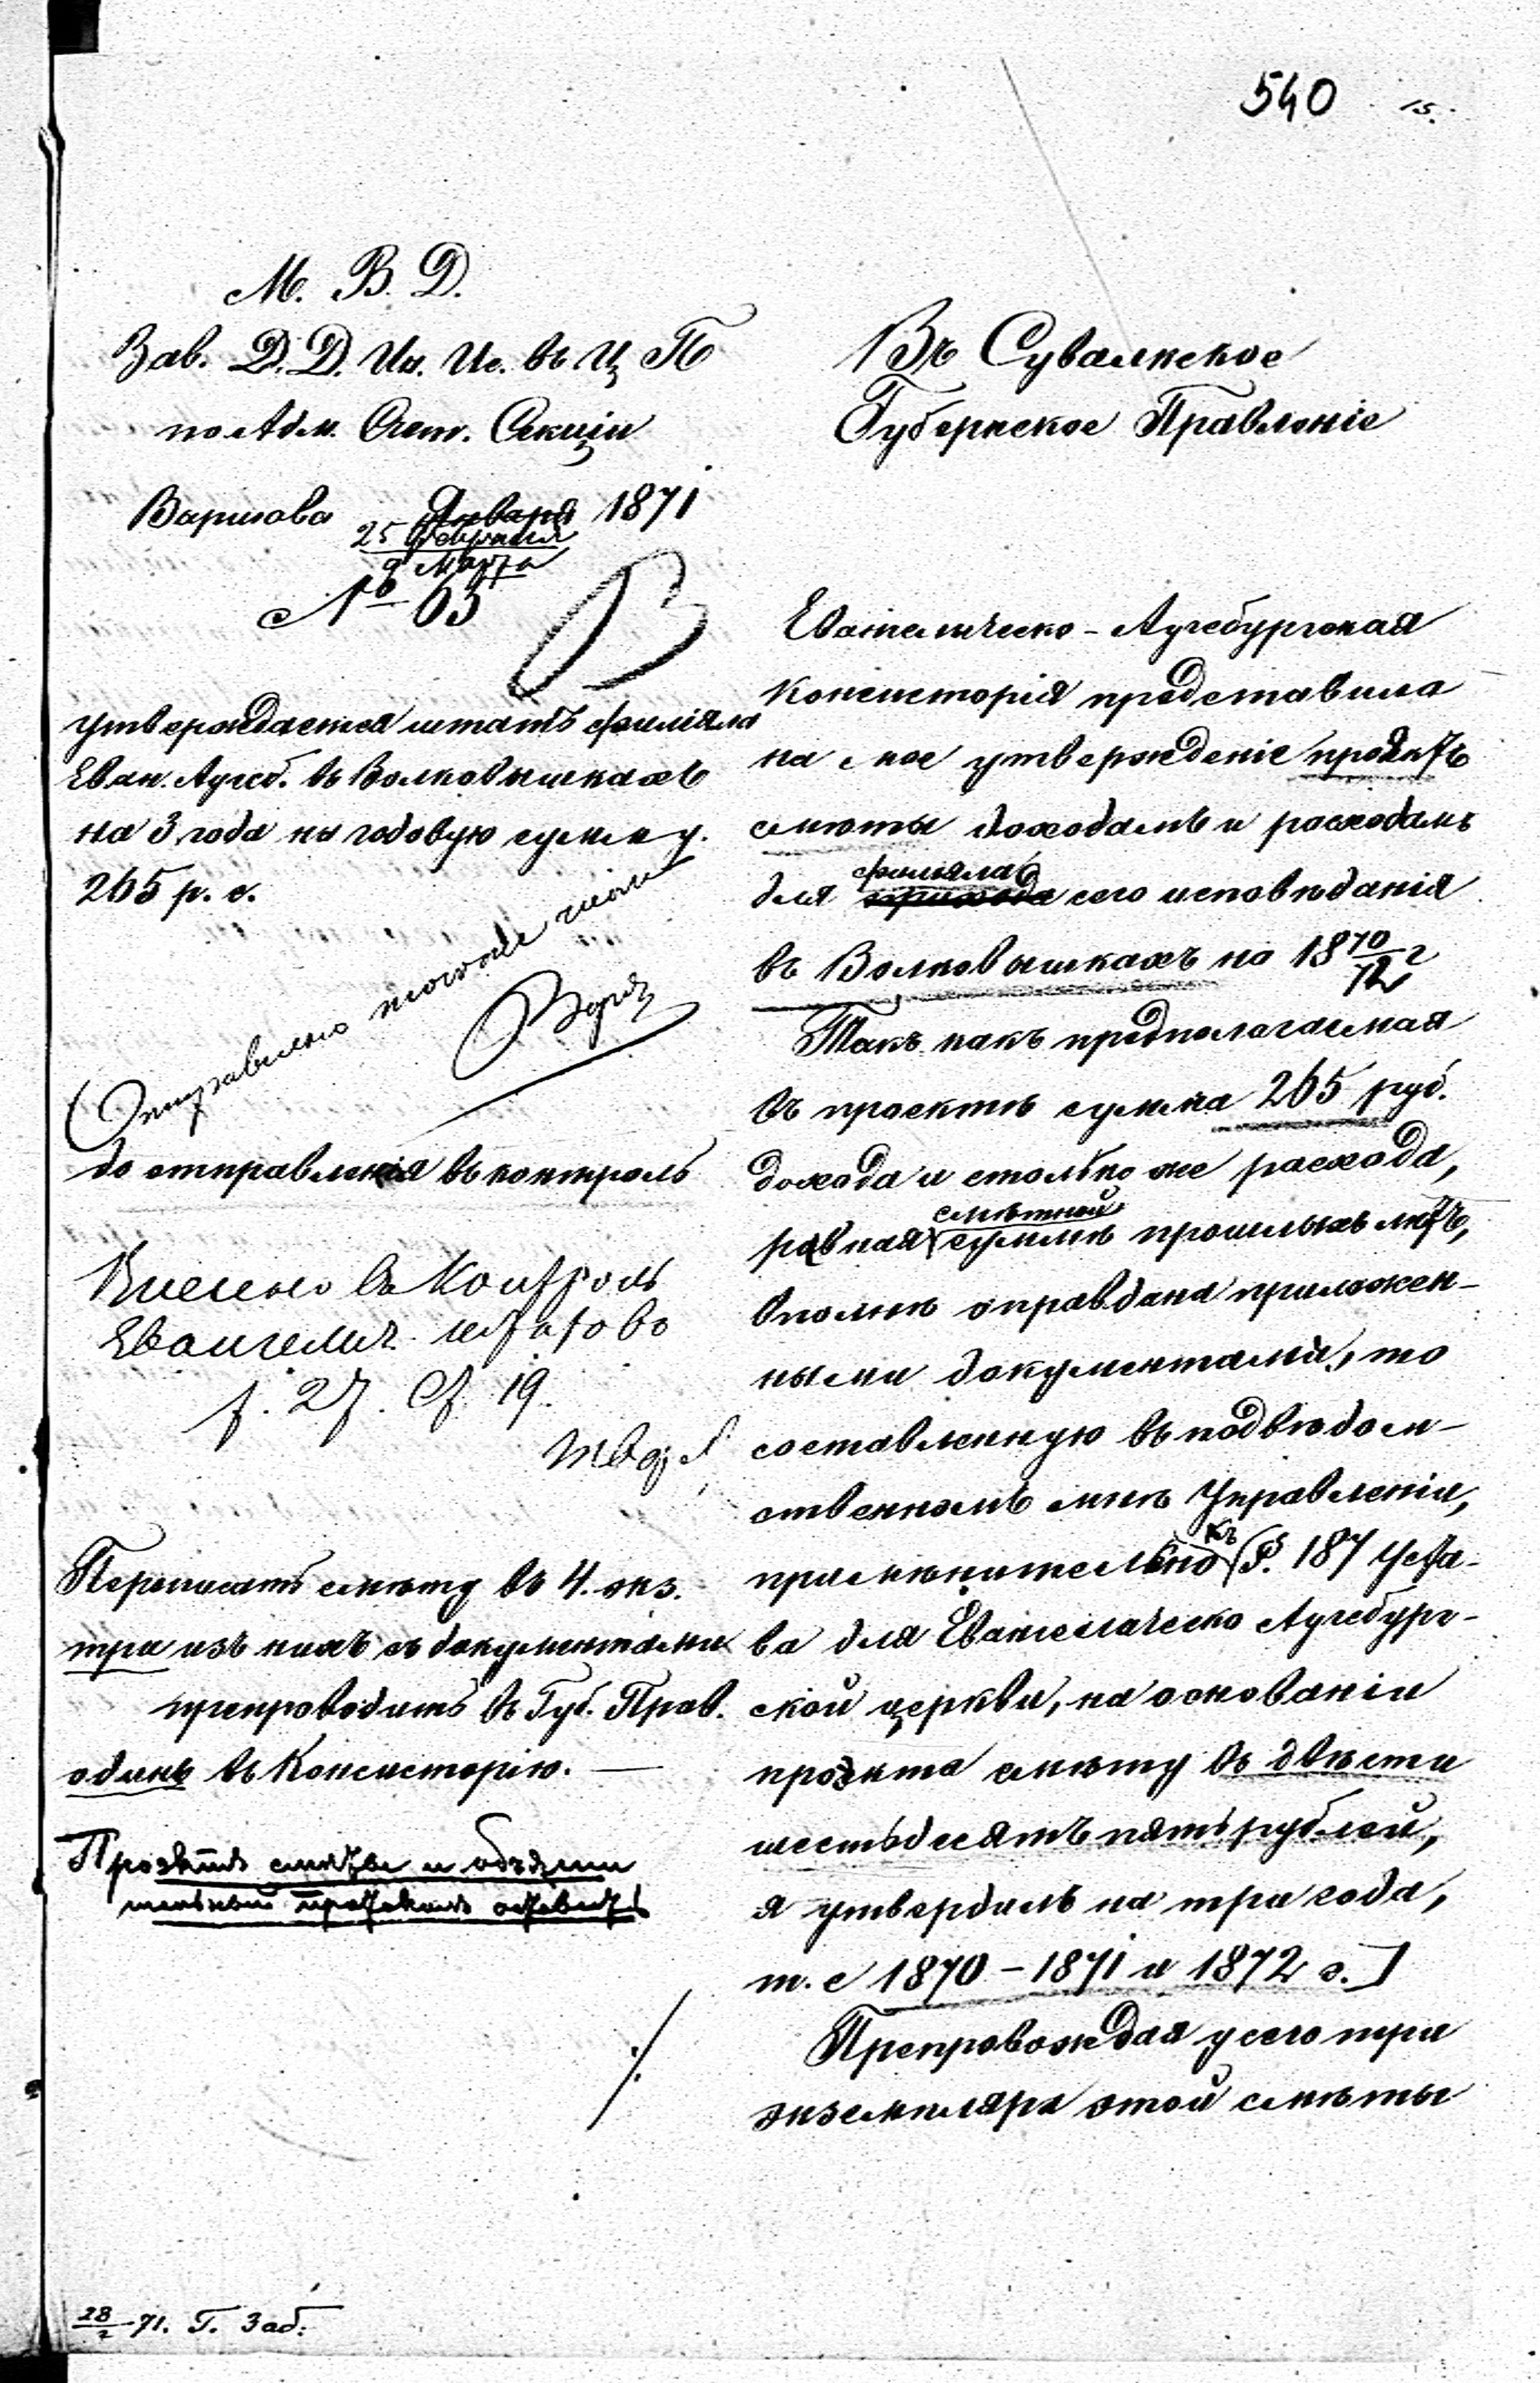 540 15.
М. В. Д.
Зав. Д. Д. Ин. Ис. въ Ц П
по Адм. Счет. Секціи
Варшава Января 1871
25 Февраля
9 Марта
№ 65
утверждается штатъ филіяла
Еван. Аугсб. въ Волковышкахъ
на 3 года на годовую сумму.
265 р. с.
Отправлено
до отправленія въ контроль
Внесено въ Контроль
Евангелич. штатовъ
f. 27. 19.
Переписать смѣту въ 4. экз.
три изъ нихъ съ документами
препроводить въ Губ. Прав.
одинъ въ Консисторію. —
Проэктъ смѣты и объясни
тельный протоколъ оставить
28/2 71. Г. Заб.
Въ Сувалкское
Губернское Правленіе
Евангелическо-Аугсбургская
Консисторія представила
на мое утвержденіе проэктъ
смѣты доходамъ и расходамъ
филіяла
для прихода сего исповѣданія
въ Волковышкахъ на 1870/72 г
Такъ какъ предполагаемая
въ проектѣ сумма 265 руб.
дохода и столько же расхода,
смѣтной
равная суммѣ прошлыхъ лѣтъ,
вполнѣ оправдана приложен-
ными документами, то
составленную въ подвѣдом-
ственномъ мнѣ Управленіи,
къ
примѣнительно §. 187 Уста-
ва для Евангелическо Аугсбург-
ской церкви, на основаніи
проэкта смѣту въ двѣсти
шестьдесятъ пять рублей,
я утвердилъ на три года,
т. е 1870 - 1871 и 1872 г. ]
Препровождая у сего три
экземпляра этой смѣты